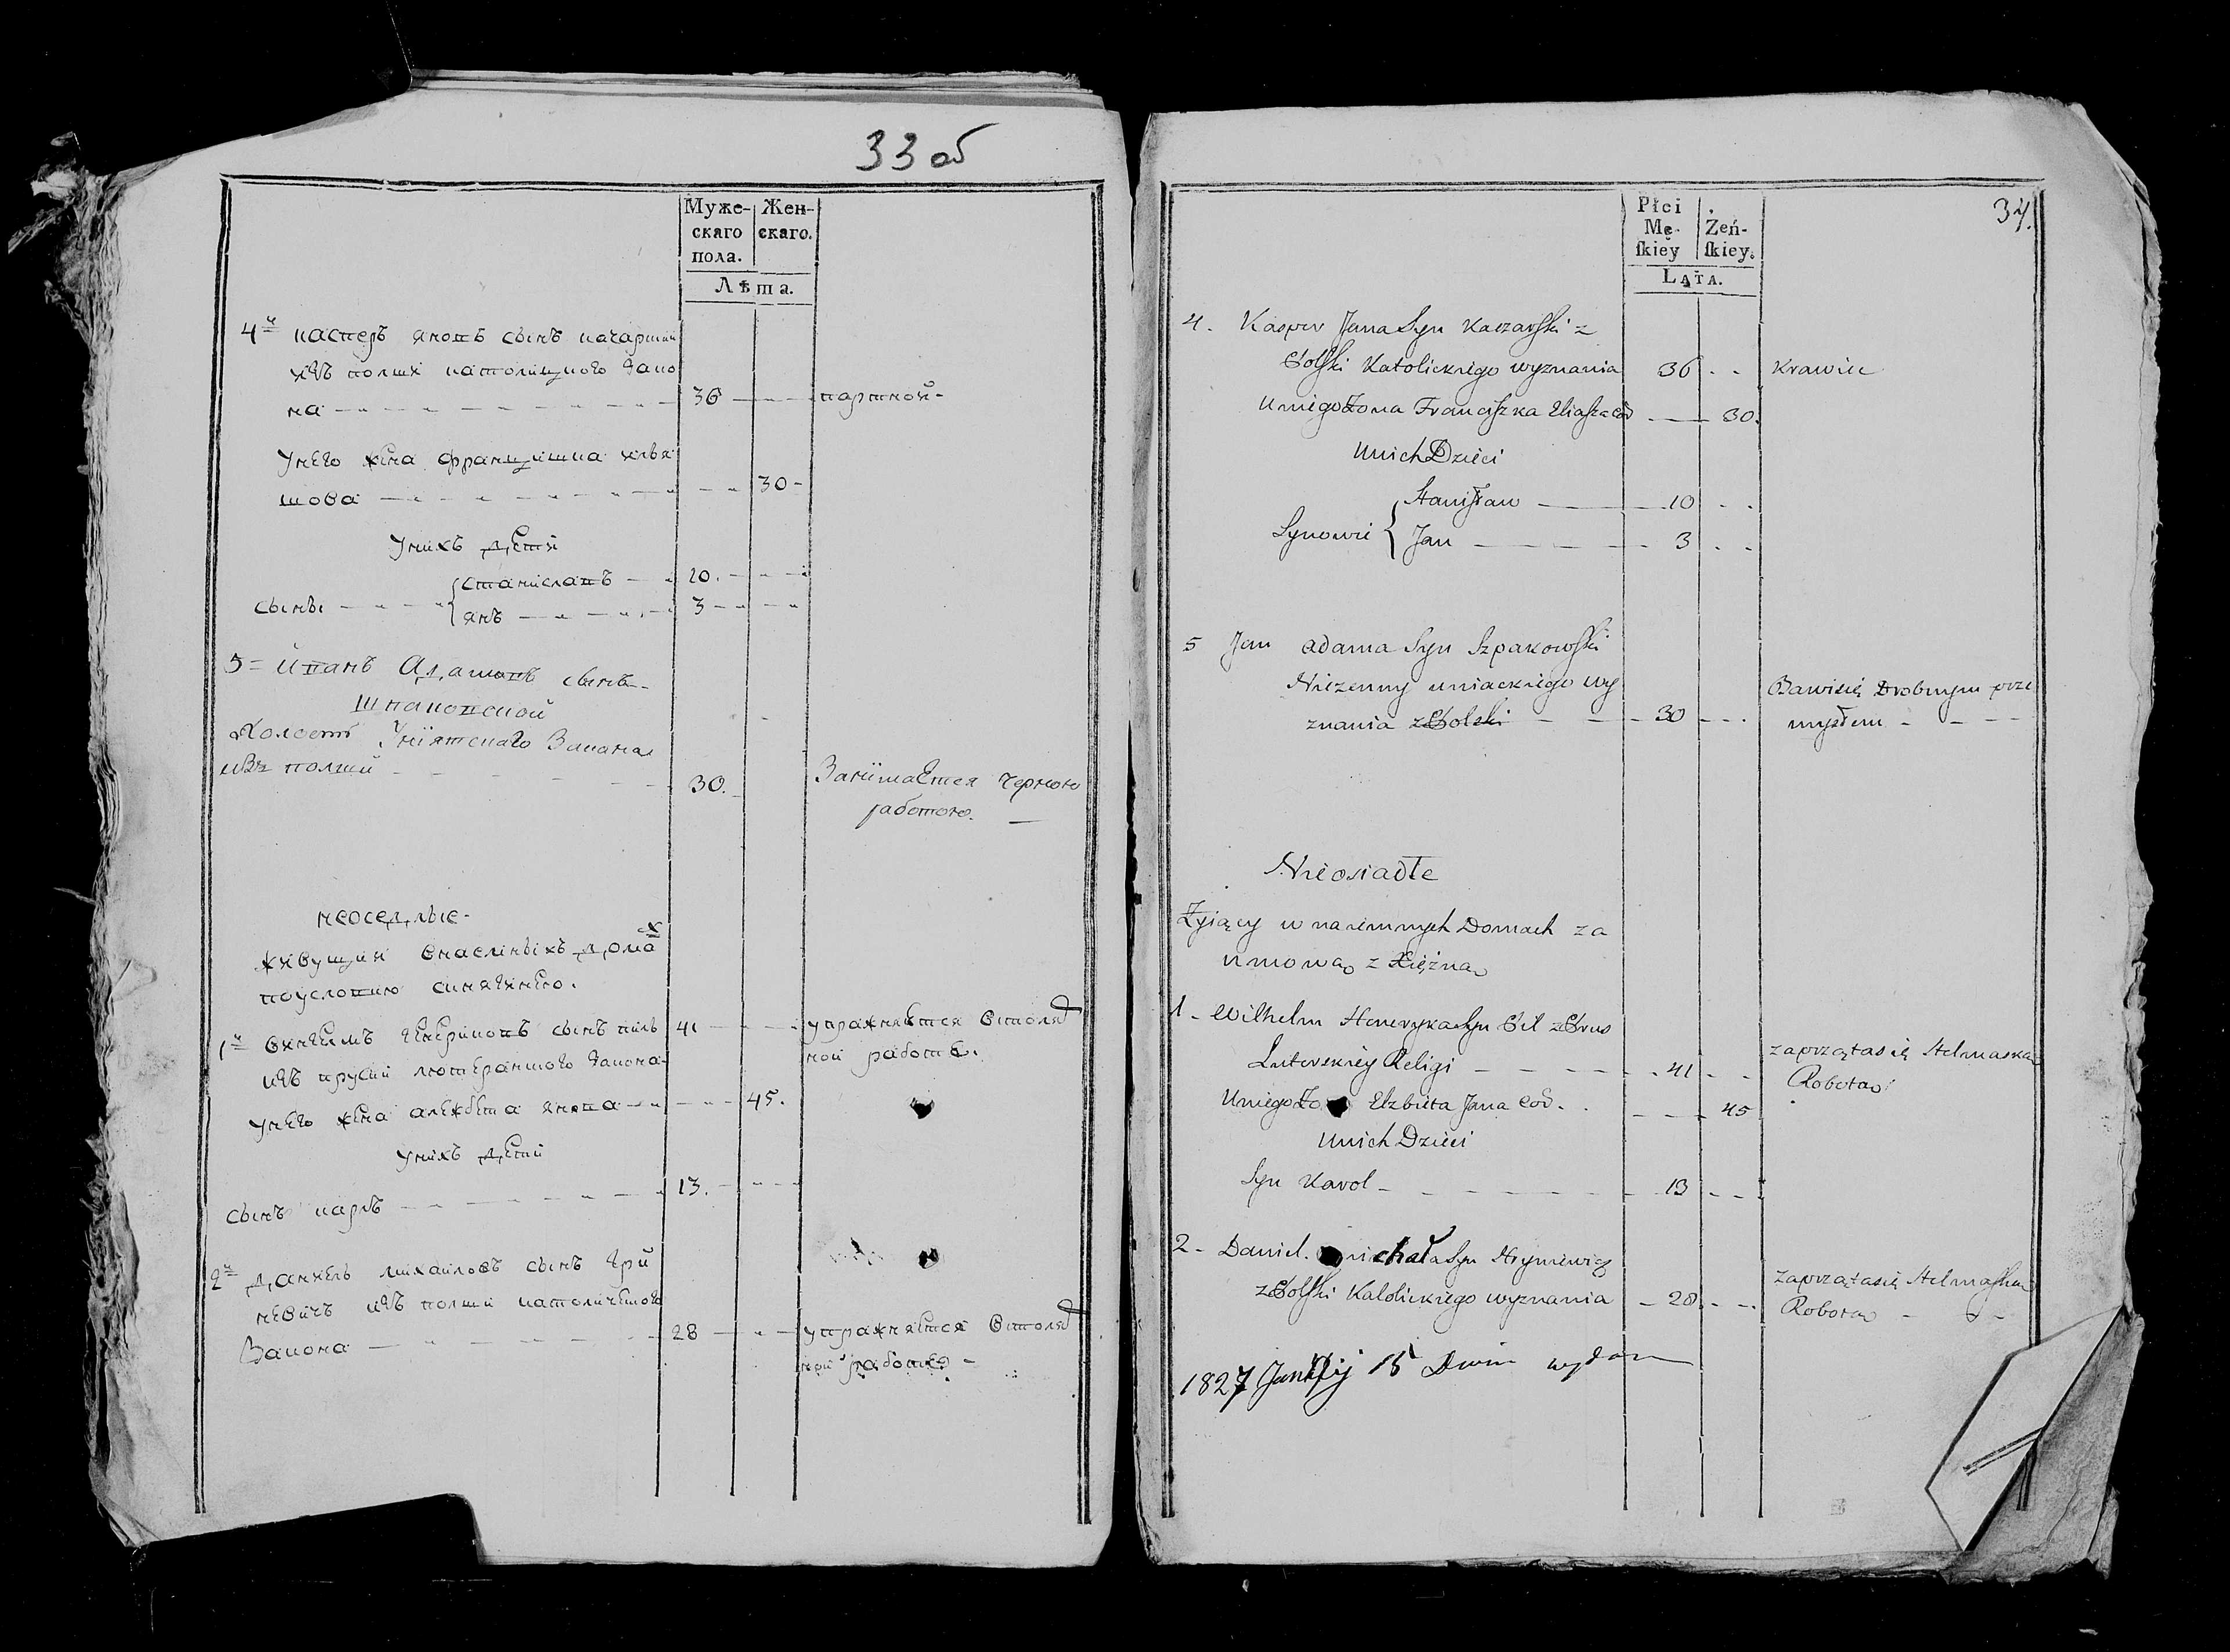 33 об
Муже-
скаго
пола.
Жен-
скаго.
Лѣта.
4й Касперъ Яновъ сынъ Качарский
изъ полши католицкого Закo
на 36 портной -
Унего жена францишка илья
шова 30 -
Унихъ дети
сыны станиславъ 10.
янъ 3
5 = Иванъ Адамовъ сынъ
Шпаковской
Холостъ Униятского Закона
изъ полши 30. Занимается черною
работою.
неоседлые -
живущии внаемныхъ дома
х
поусловию скнягинею.
1й вильгелмъ генриховъ сынъ пиль 41 упражняется встоляр
изъ прусии лютеранского закона ной работе.
унего жена алжбета янова 45.
унихъ дети
сынъ карлъ 13.
2й даниель михаиловъ сынъ гри
невичъ изъ полши католического
Закона 28 упражняется встоляр
ной работе -
34.
Płci
Mę-
ſkiey
Żeń-
ſkiey.
LATA.
4. Kasper Jana Syn Kaczarski z
Polski Katolickiego wyznania 36 Krawiec
Uniego Żona Franciszka Eliasza Cór 30.
Unich Dzieci
Synowie { Stanisław 10
Jan 3
5 Jan Adama Syn Szpakowski
Nieżenny uniackiego wy Bawi się Drobnym prze
znania z Polski 30 mysłem
Nieosiadłe
Żyiący w naiemnych Domach za
umową z Xiężną
1 - Wilhelm Henryka Syn Pil z Prus
Luterskiey Religi 41 zaprząta się Stelmaską
Robotą
Uniego Żo Elzbieta Jana Cór. 45
Unich Dzieci
Syn Karol 13
2 - Daniel. Michała Syn Hryniewicz
z Polski Katolickiego wyznania 28 zaprząta się Stelmaską
Robotą
1827 15 Dnia wydan